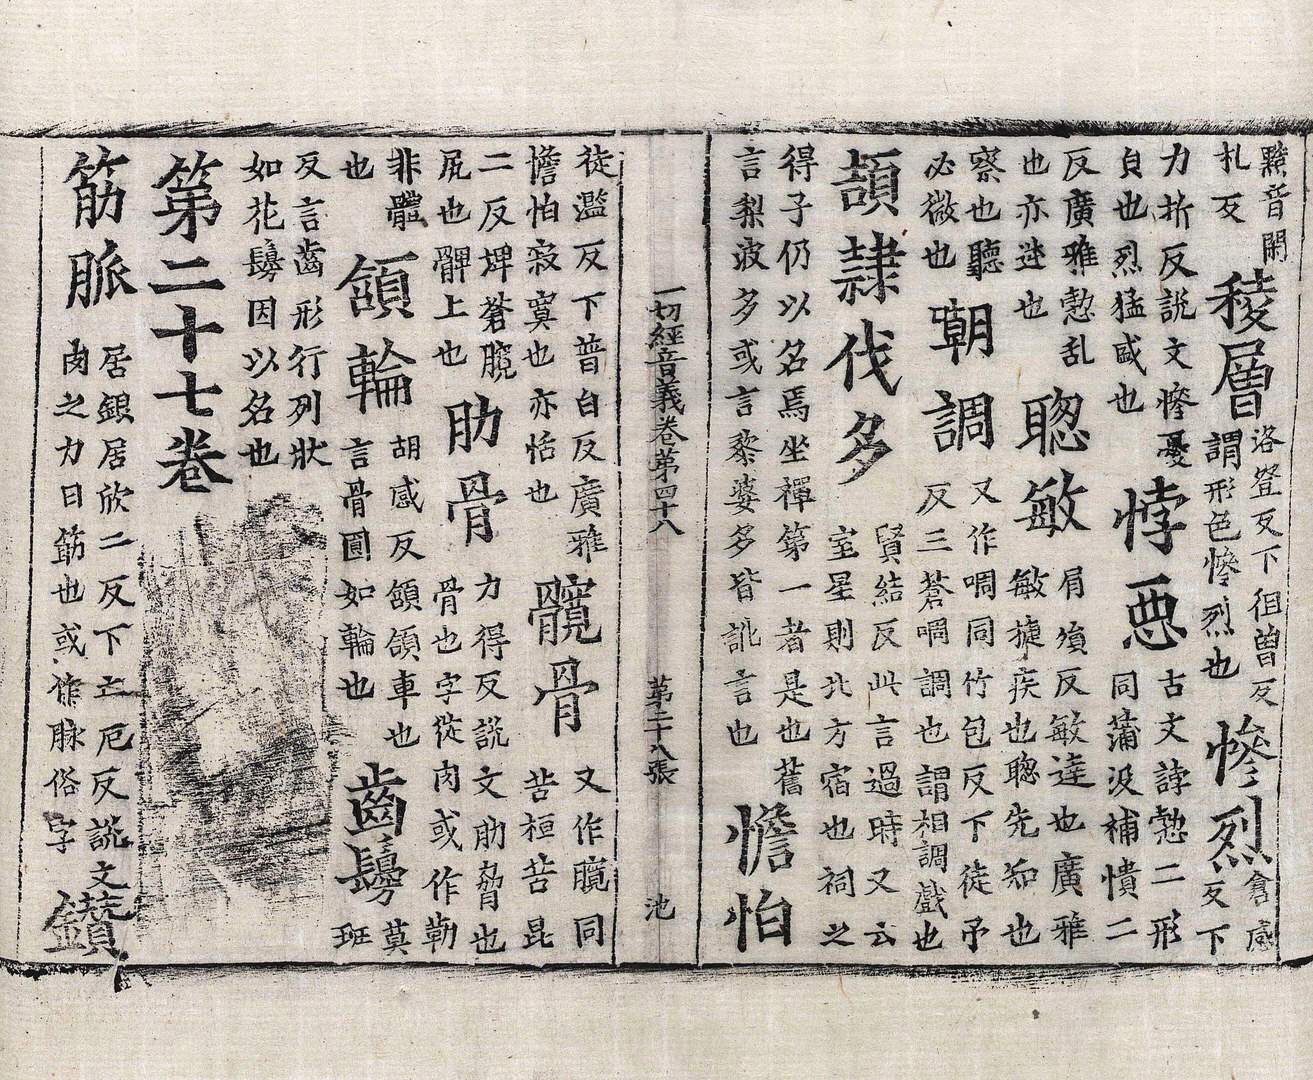 黠音閑札反稜層洛登反下徂曽反謂形色慘烈也慘烈倉感反下
力折反說文慘憂貞也烈猛盛也悖惡古文誖愂二形同蒲没補憒二
反廣雅愂乱也亦迷也聡敏眉殞反敏達也廣雅敏捷疾也聡先知也
察也聽必微也嘲調又作啁同竹包反下徒予反三蒼啁調也謂相調戲也
頡隷伐多賢結反此言過時又云室星則北方宿也祠之
得子仍以名焉坐禪第一者是也舊言梨波多或言黎婆多皆訛言也憺怕
一切經音義卷第四十八 第二十八張 池
徒濫反下普白反廣雅憺怕寂寞也亦恬也髖骨又作臗同苦桓苦昆
二反埤蒼臗尻也髀上也肋骨力得反說文肋脅也骨也字從肉或作勒
非體也頷輪胡感反頷頷車也言骨圓如輪也齒鬘莫班
反言齒形行列狀如花鬘因以名也
第二十七卷
筋脈居銀居欣二反下亡厄反說文肉之力曰筋也或作脉俗字鑚